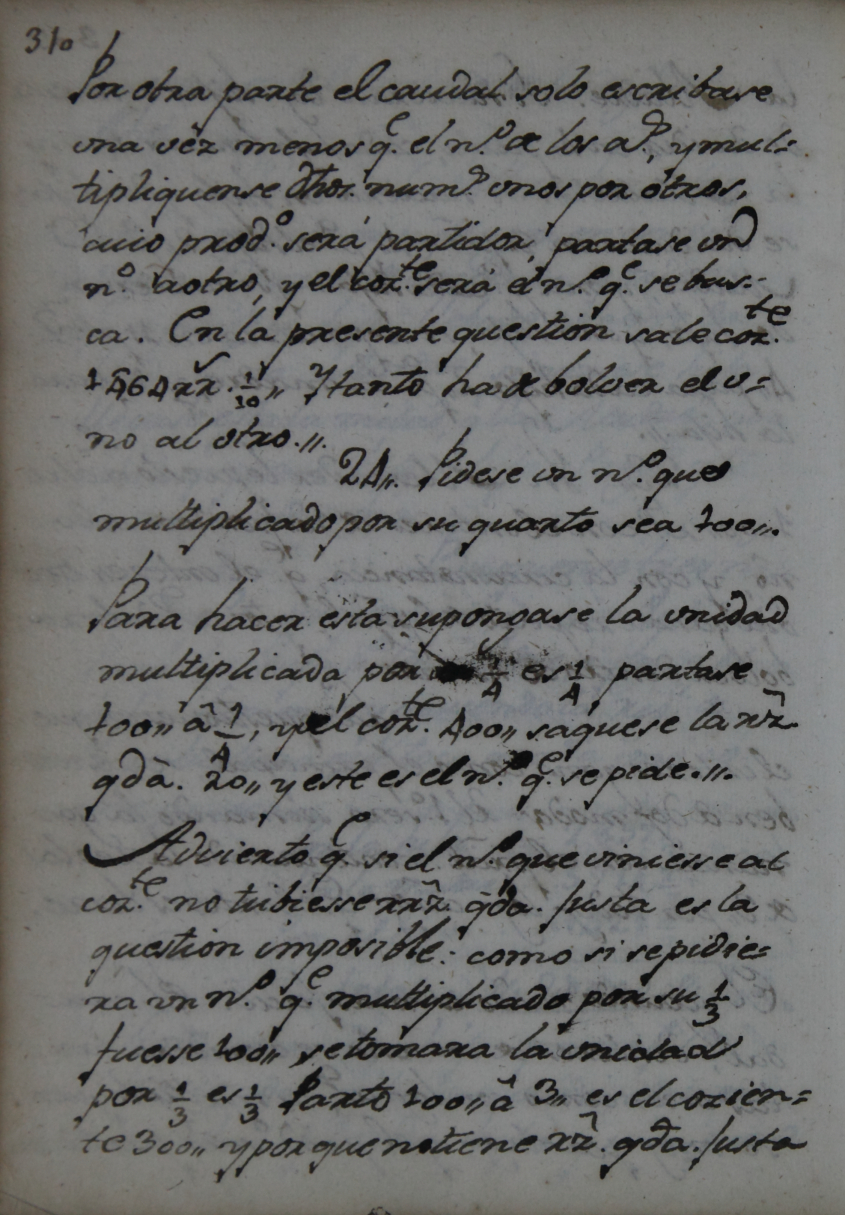 310
Por otra parte el caudal solo escribase
una vêz menos q.e el n.o de los a.s, y mul=
tipliquense dhos. num.s vnos por ôtros,
cuio prod.o será partidor, partase vn
n.o â otro, y el coz.te será el n.o q.e se bus=
ca. En la presente question sale coz.te
1464 rr.s 1/10,, Y tanto ha de bolver el v=
no al otro.,,
24,, Pidese un n.o que
multiplicado por su quarto sea 100,,.
Para hacer esta supongase la vnidad
multiplicada por 1/4 es 1/4 partase
100,, â 1/4, y el coz.te 400,, saquese la rz̃
qdã. 20,, y este es el n.o q.e se pide.,,.
Advierto q.e si el n.o que viniesse al
coz.te no tubiesse rrz̃ qda. Justa es la
question imposible: como si se pidie=
ra vn n.o q.e multiplicado por su 1/3
fuesse 100,, se tomara la vnidad
por 1/3 es 1/3 Parto 100,, â 3,, es el cozien=
te 300,, y porque no tiene rz̃. qda. Justa